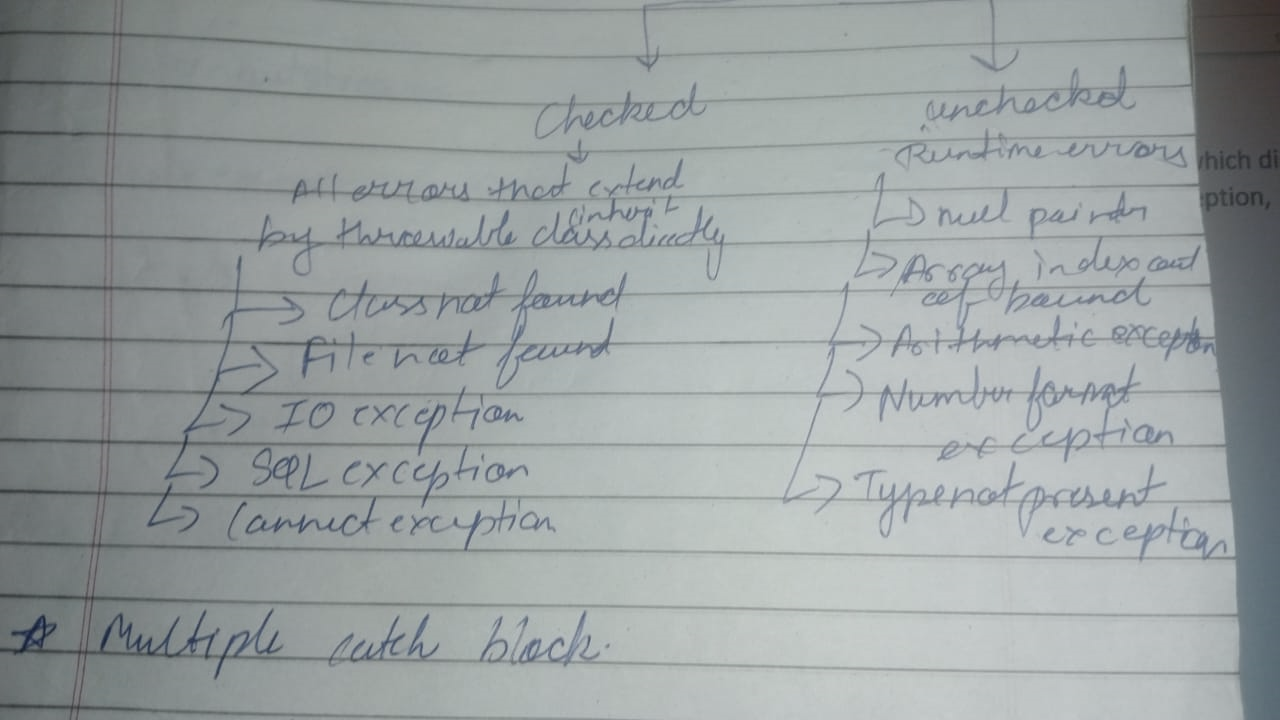 Checked
All errors that extend
(inherit
by throwable class directly
Class not found
File not found
IO exception
SQL exception
Connect exception
unchecked
Runtime errors
null pointer
Array index out
of bound
Arithmetic exception
Number format
exception
Type not present
exception
☆ Multiple catch block.
which di
ption,